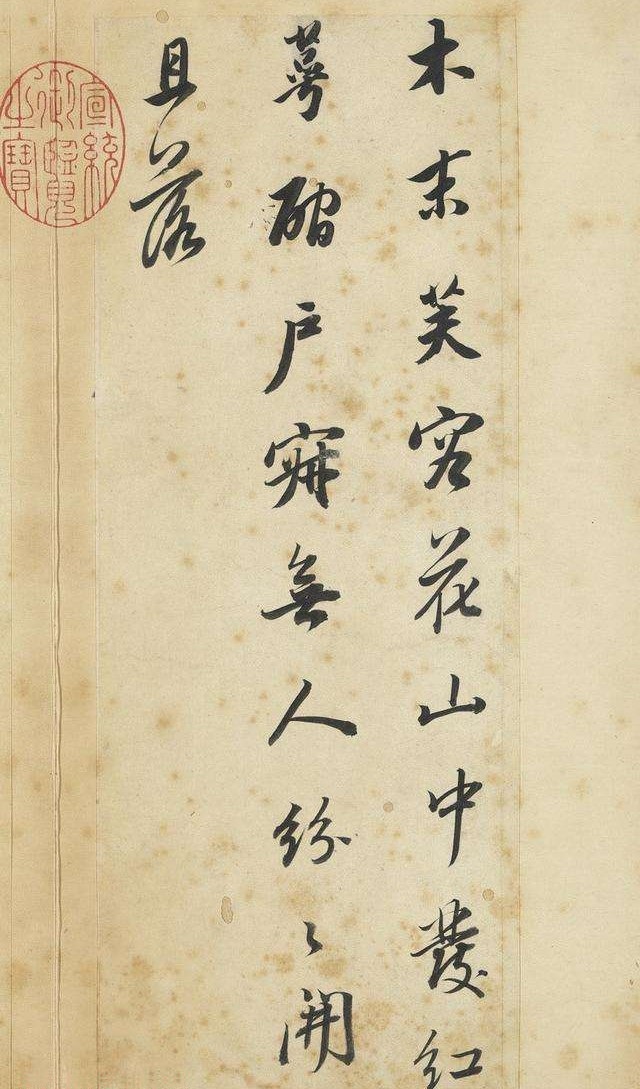 木末芙容花山中發紅
萼磵戶寂無人紛〻開
且落
宣統
御覽
之寶